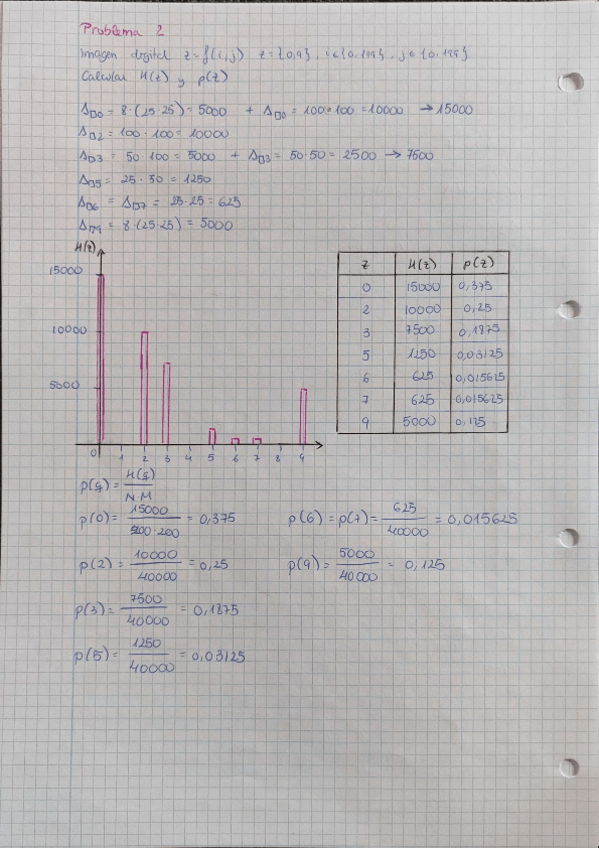 Problema 2
Imagen digital z = f(i,j) z = {0,9}, i ∈ {0,199}, j ∈ {0,199}
Calcular H(z) y p(z)
A□0 = 8·(25·25) = 5000 + A□0 = 100·100 = 10000 → 15000
A□2 = 100·100 = 10000
A□3 = 50·100 = 5000 + A□3 = 50·50 = 2500 → 7500
A□5 = 25·50 = 1250
A□6 = A□7 = 25·25 = 625
= 8·(25·25) = 5000
H(z)
15000
10000
5000
0 1 2 3 4 5 6 7 8 9
z H(z) p(z)
0 15000 0,375
2 10000 0,25
3 7500 0,1875
5 1250 0,03125
6 625 0,015625
7 625 0,015625
9 5000 0,125
p(q) = H(q) / N·M
p(0) = 15000 / 200·200 = 0,375 p(6) = p(7) = 625 / 40000 = 0,015625
p(2) = 10000 / 40000 = 0,25 p(9) = 5000 / 40000 = 0,125
p(3) = 7500 / 40000 = 0,1875
p(5) = 1250 / 40000 = 0,03125